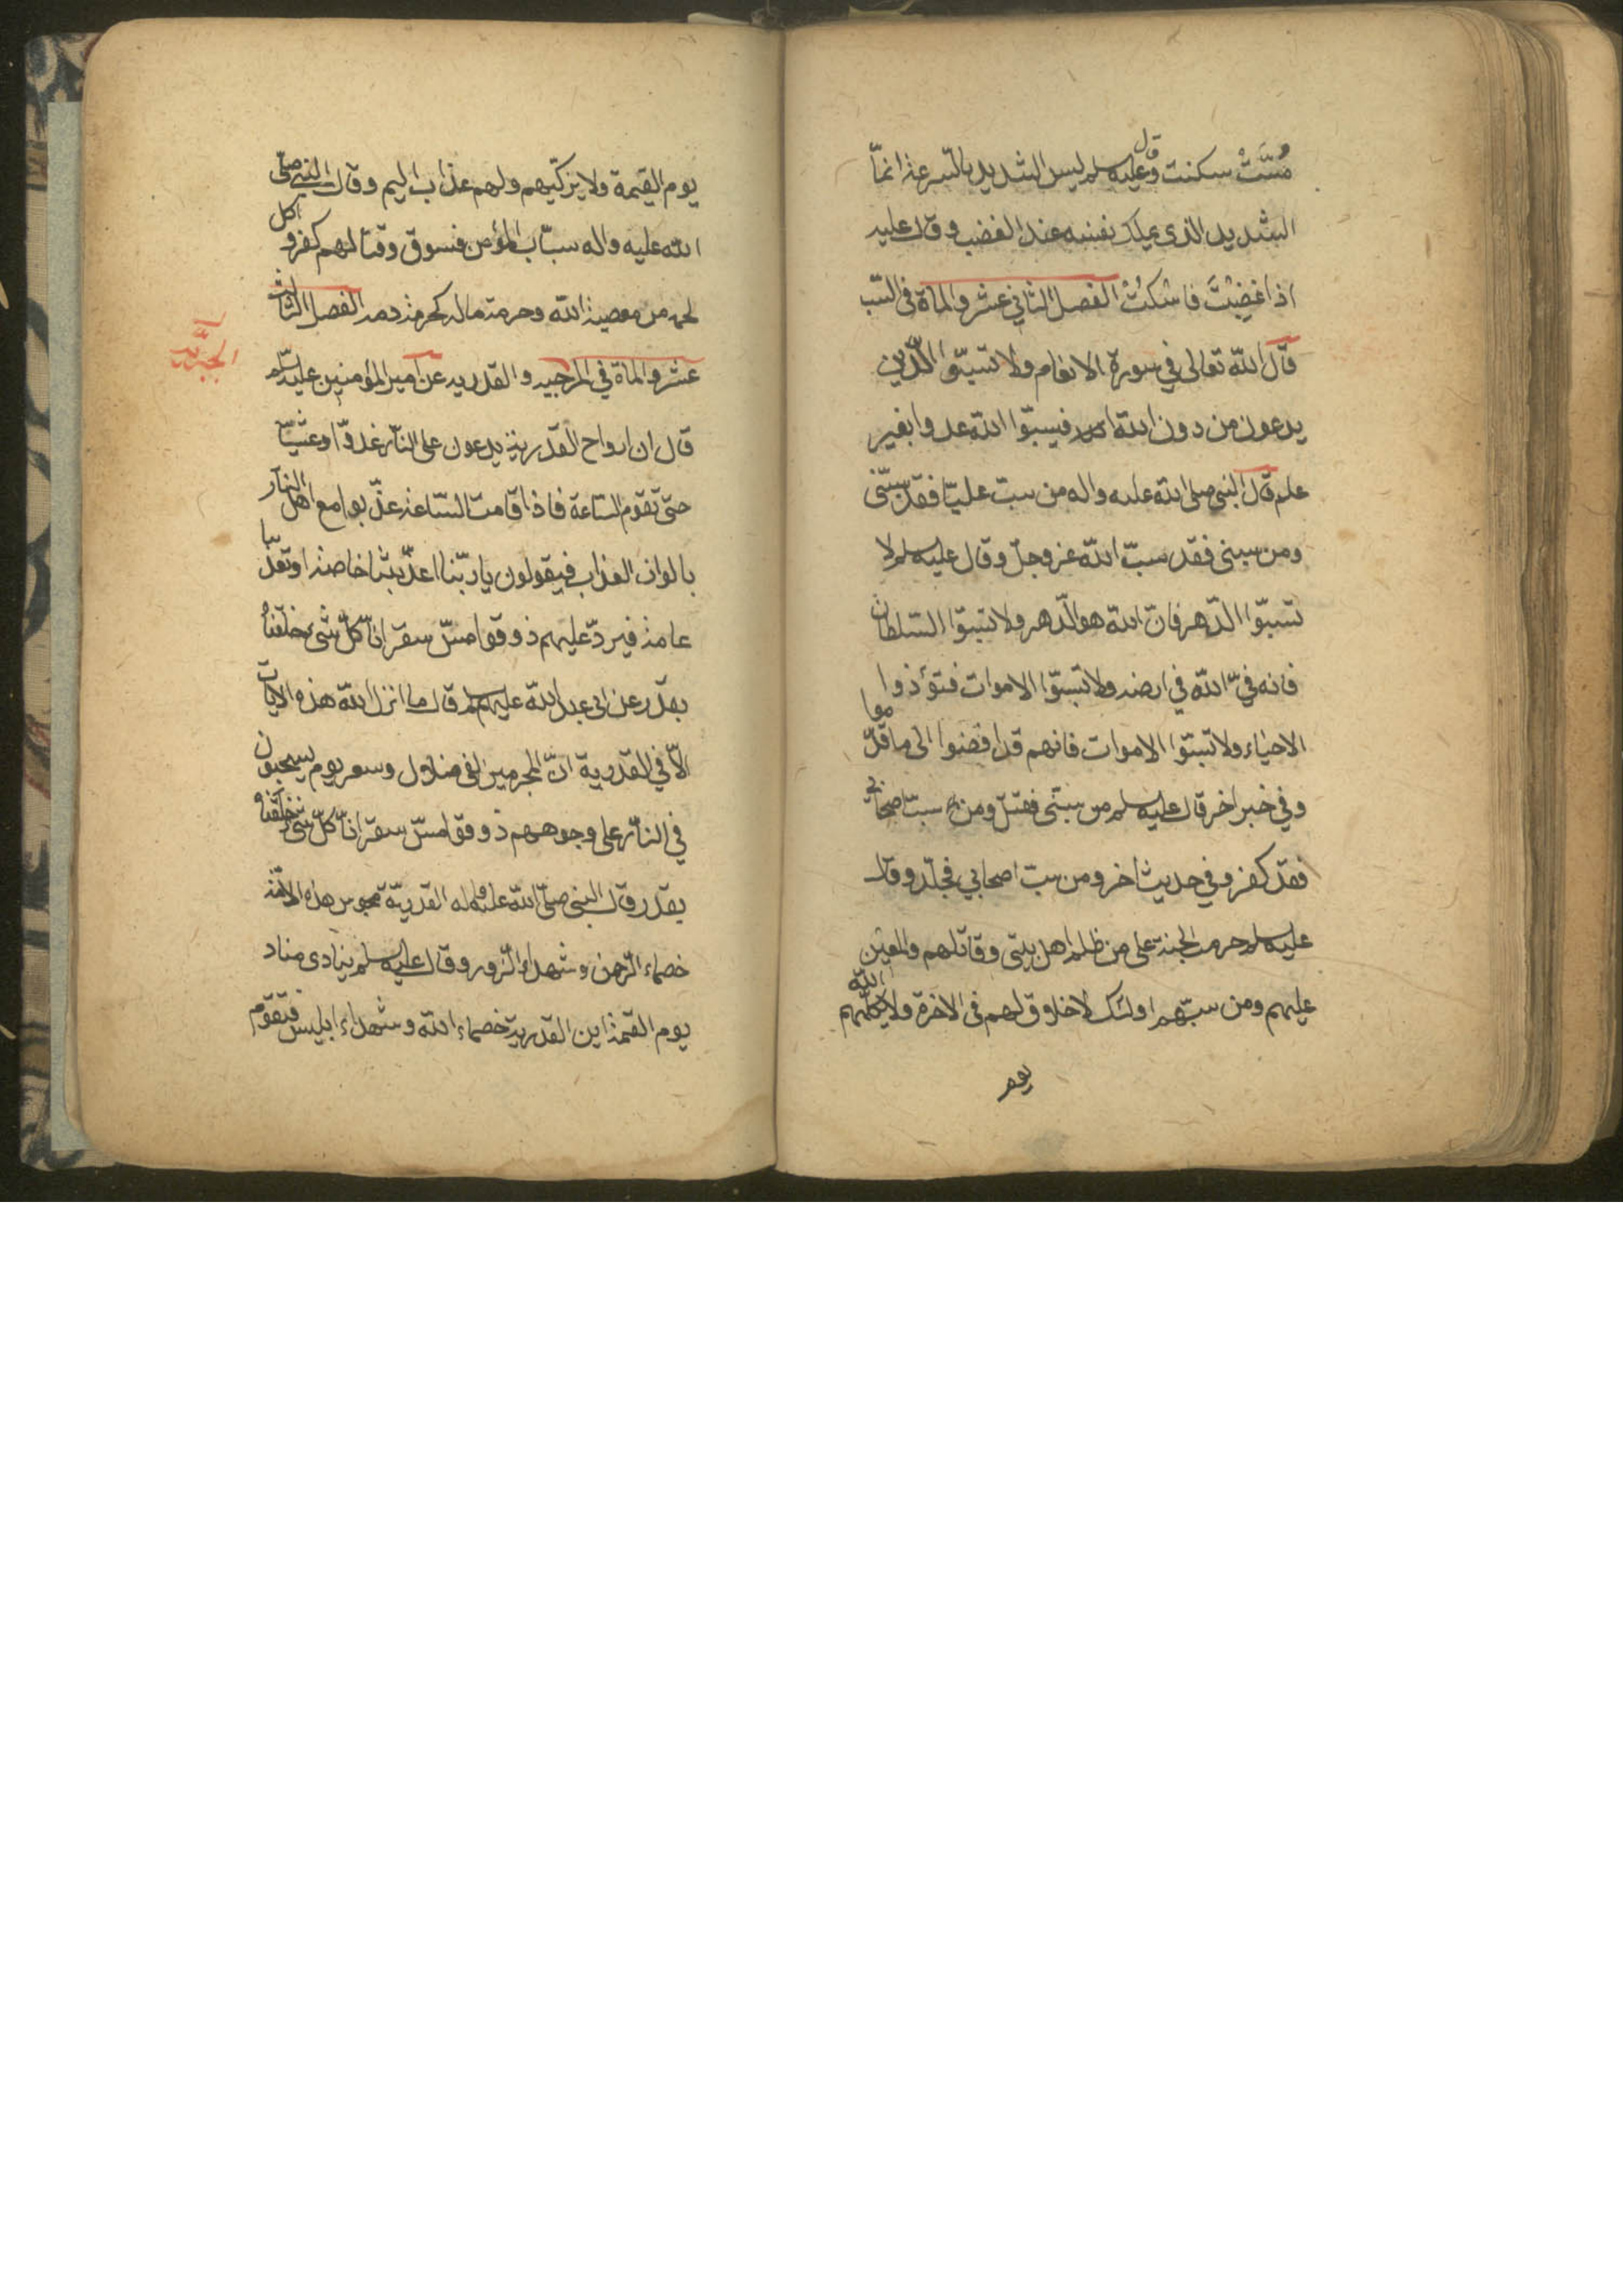 مُسَّتْ سكنت وقال عليه سلم ليس الشديد بالسرعة انمّا
الشديد الذى يملك نفسه عند الغضب وقال عليه
اذا غضِبْتَ فاسْكُتْ الفصل الثاني عشر والمأة فى السّب
قال الله تعالى في سورة الانعام ولا تسبّوا الّذين
يدعون من دون الله فيسبّوا الله عدوا بغير
علم قال النبى صلى الله عليه واله من سبّ عليّا فقد سبّنى
ومن سبنى فقد سبّ الله عز وجلّ وقال عليه سلم لا
تسبّوا الدّهر فانّ الله هو الدّهر ولا تسبّوا السّلطان
فانه فىّ الله في ارضه ولا تسبّوا الاموات فتؤذوا
الاحياء ولا تسبّوا الاموات فانهم قد افضوا الى ما قدّموا
وفي خبر اخر قال عليه سلم من سبّنى فقتل ومن سبّ اصحابي
فقد كفر وفي حديث اخر ومن سبّ اصحابي فجلّد وقال
عليه سلم حرمت الجنة على من ظلم اهل بيتى وقاتلهم والمعين
عليهم ومن سبّهم اولئك لا خلاق لهم فى الاخرة ولا يكلّمهم الله
يوم
يوم القيمة ولا يزكّيهم ولهم عذاب اليم وقال النبي صلّى
الله عليه واله سبّاب المؤمن فسوق وقتالهم كفر و اكل
لحمه من معصية الله وحرمة ماله كحرمة دمه الفصل الثالث
عشر والمأة في المرجيه والقدريه عن امير المؤمنين عليه سلم
الجبريّه
قال ان ارواح القدرية يدعون على النّار غدوّا وعشيّا
حتى تقوم الساعة فاذا قامت السّاعة عذّبوا مع اهل النار
بالوان العذاب فيقولون يا ربّنا اعذّبتنا خاصة وتعذّبنا
عامة فيردّ عليهم ذوقوا مسّ سقر انّا كلّ شىء خلقناه
بقدر عن ابى عبد الله عليهم سلم قال ما انزل الله هذه الايات
الاّ في القدرية انّ المجرمين لفى ضلال وسعر يوم يسحبون
في النّار على وجوههم ذوقوا مسّ سقر انّا كلّ شىء خلقناه
بقدر وقال النبى صلى الله عليه واله القدريّة مجوس هذه الامّة
خصماء الرّحمن وشهداء الزّور وقال عليه سلم ينادى مناد
يوم القيمة اين القدرية خصماء الله وشهداء ابليس فتقوم